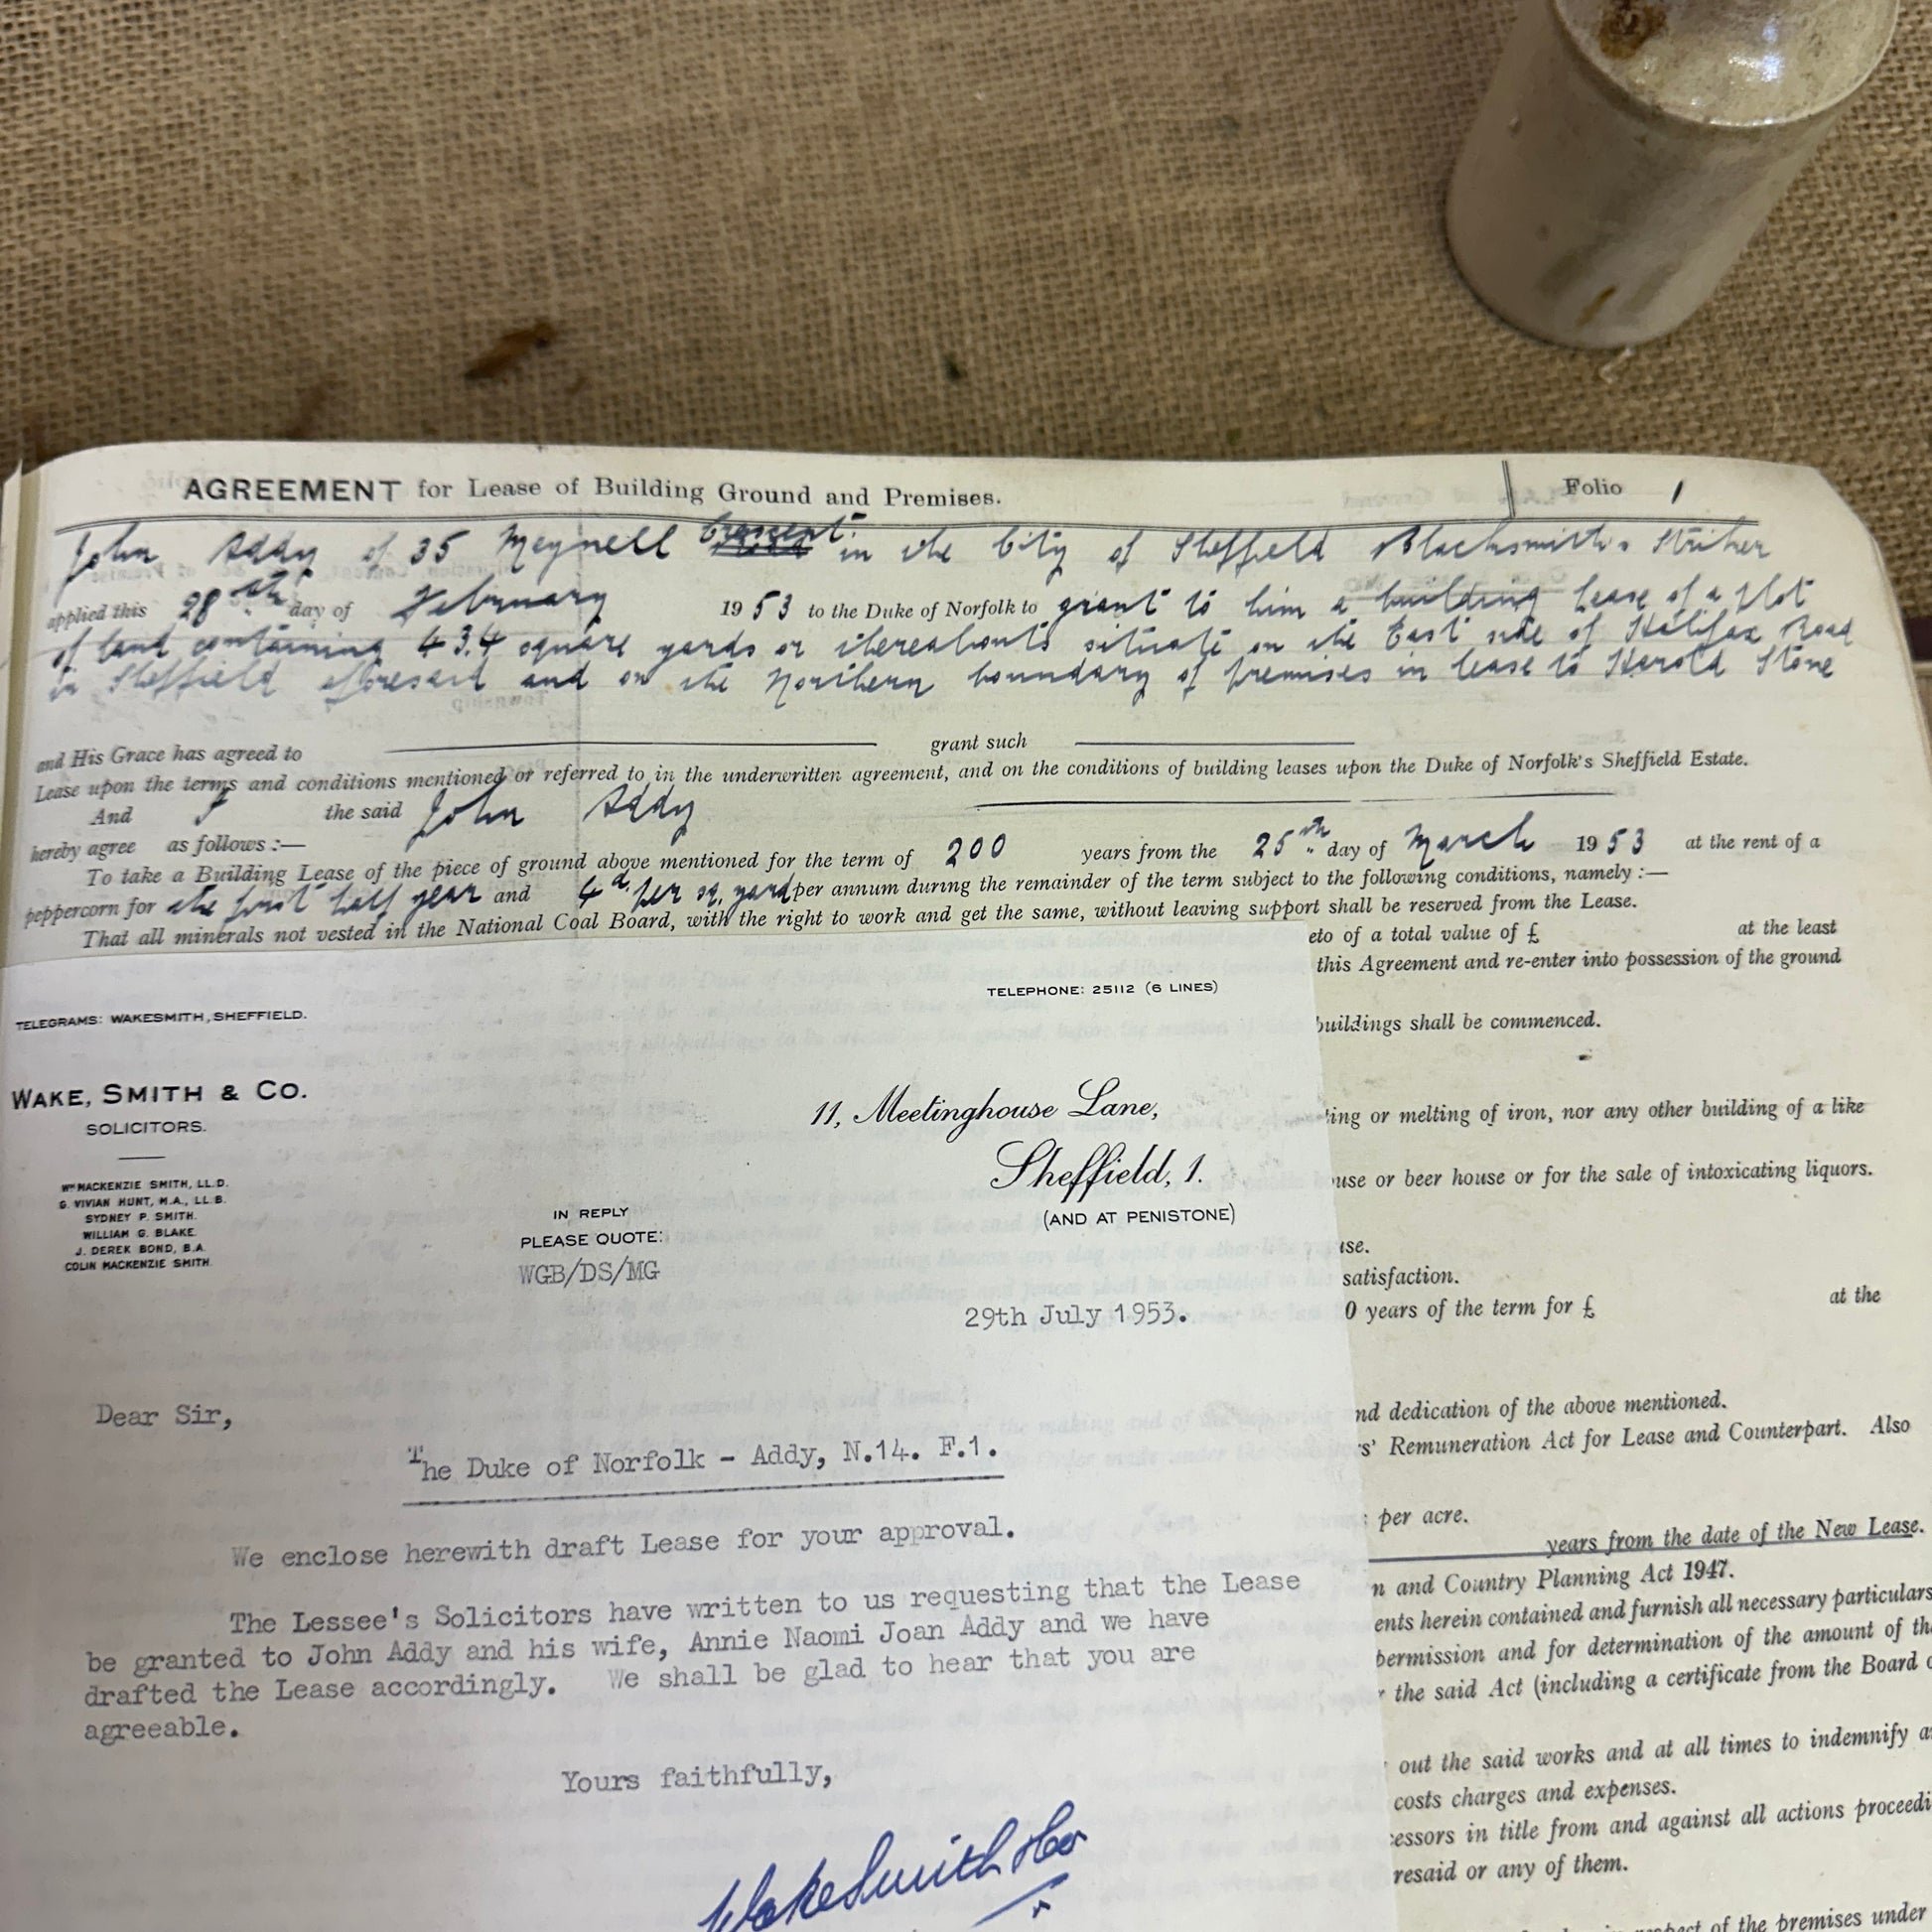 AGREEMENT for Lease of Building Ground and Premises. Folio 1
John Addy of 35 Meynell Crescent in the City of Sheffield Blacksmith's Striker
applied this 28th day of February 1953 to the Duke of Norfolk to grant to him a building lease of a plot
of land containing 434 square yards or thereabouts situate on the East side of Halifax Road
in Sheffield aforesaid and on the Northern boundary of premises in lease to Harold Stone
and His Grace has agreed to grant such
Lease upon the terms and conditions mentioned or referred to in the underwritten agreement, and on the conditions of building leases upon the Duke of Norfolk's Sheffield Estate.
And I the said John Addy
hereby agree as follows :—
To take a Building Lease of the piece of ground above mentioned for the term of 200 years from the 25th day of March 1953 at the rent of a
peppercorn for the first half year and 4d per sq. yard per annum during the remainder of the term subject to the following conditions, namely :—
That all minerals not vested in the National Coal Board, with the right to work and get the same, without leaving support shall be reserved from the Lease.
eto of a total value of £ at the least
this Agreement and re-enter into possession of the ground
buildings shall be commenced.
ting or melting of iron, nor any other building of a like
ouse or beer house or for the sale of intoxicating liquors.
use.
satisfaction.
0 years of the term for £ at the
nd dedication of the above mentioned.
s' Remuneration Act for Lease and Counterpart. Also
per acre.
years from the date of the New Lease.
n and Country Planning Act 1947.
ents herein contained and furnish all necessary particulars
permission and for determination of the amount of th
r the said Act (including a certificate from the Board o
out the said works and at all times to indemnify a
costs charges and expenses.
cessors in title from and against all actions proceedi
resaid or any of them.
respect of the premises under
TELEGRAMS: WAKESMITH, SHEFFIELD.
TELEPHONE: 25112 (6 LINES)
WAKE, SMITH & CO.
SOLICITORS.
WM MACKENZIE SMITH, LL.D.
G. VIVIAN HUNT, M.A., LL.B.
SYDNEY P. SMITH.
WILLIAM G. BLAKE.
J. DEREK BOND, B.A.
COLIN MACKENZIE SMITH.
11, Meetinghouse Lane,
Sheffield, 1.
(AND AT PENISTONE)
IN REPLY
PLEASE QUOTE:
WGB/DS/MG
29th July 1953.
Dear Sir,
The Duke of Norfolk - Addy, N.14. F.1.
We enclose herewith draft Lease for your approval.
The Lessee's Solicitors have written to us requesting that the Lease
be granted to John Addy and his wife, Annie Naomi Joan Addy and we have
drafted the Lease accordingly. We shall be glad to hear that you are
agreeable.
Yours faithfully,
Wake Smith & Co